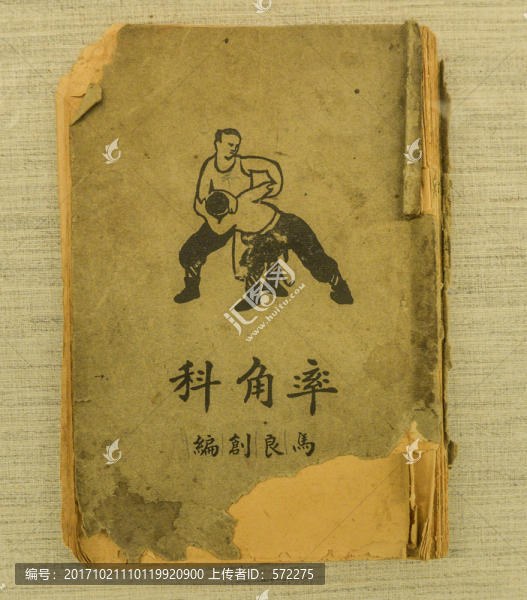 率角科
馬良創編
汇图网
www.huitu.com
编号：20171021110119920900 上传者ID：572275